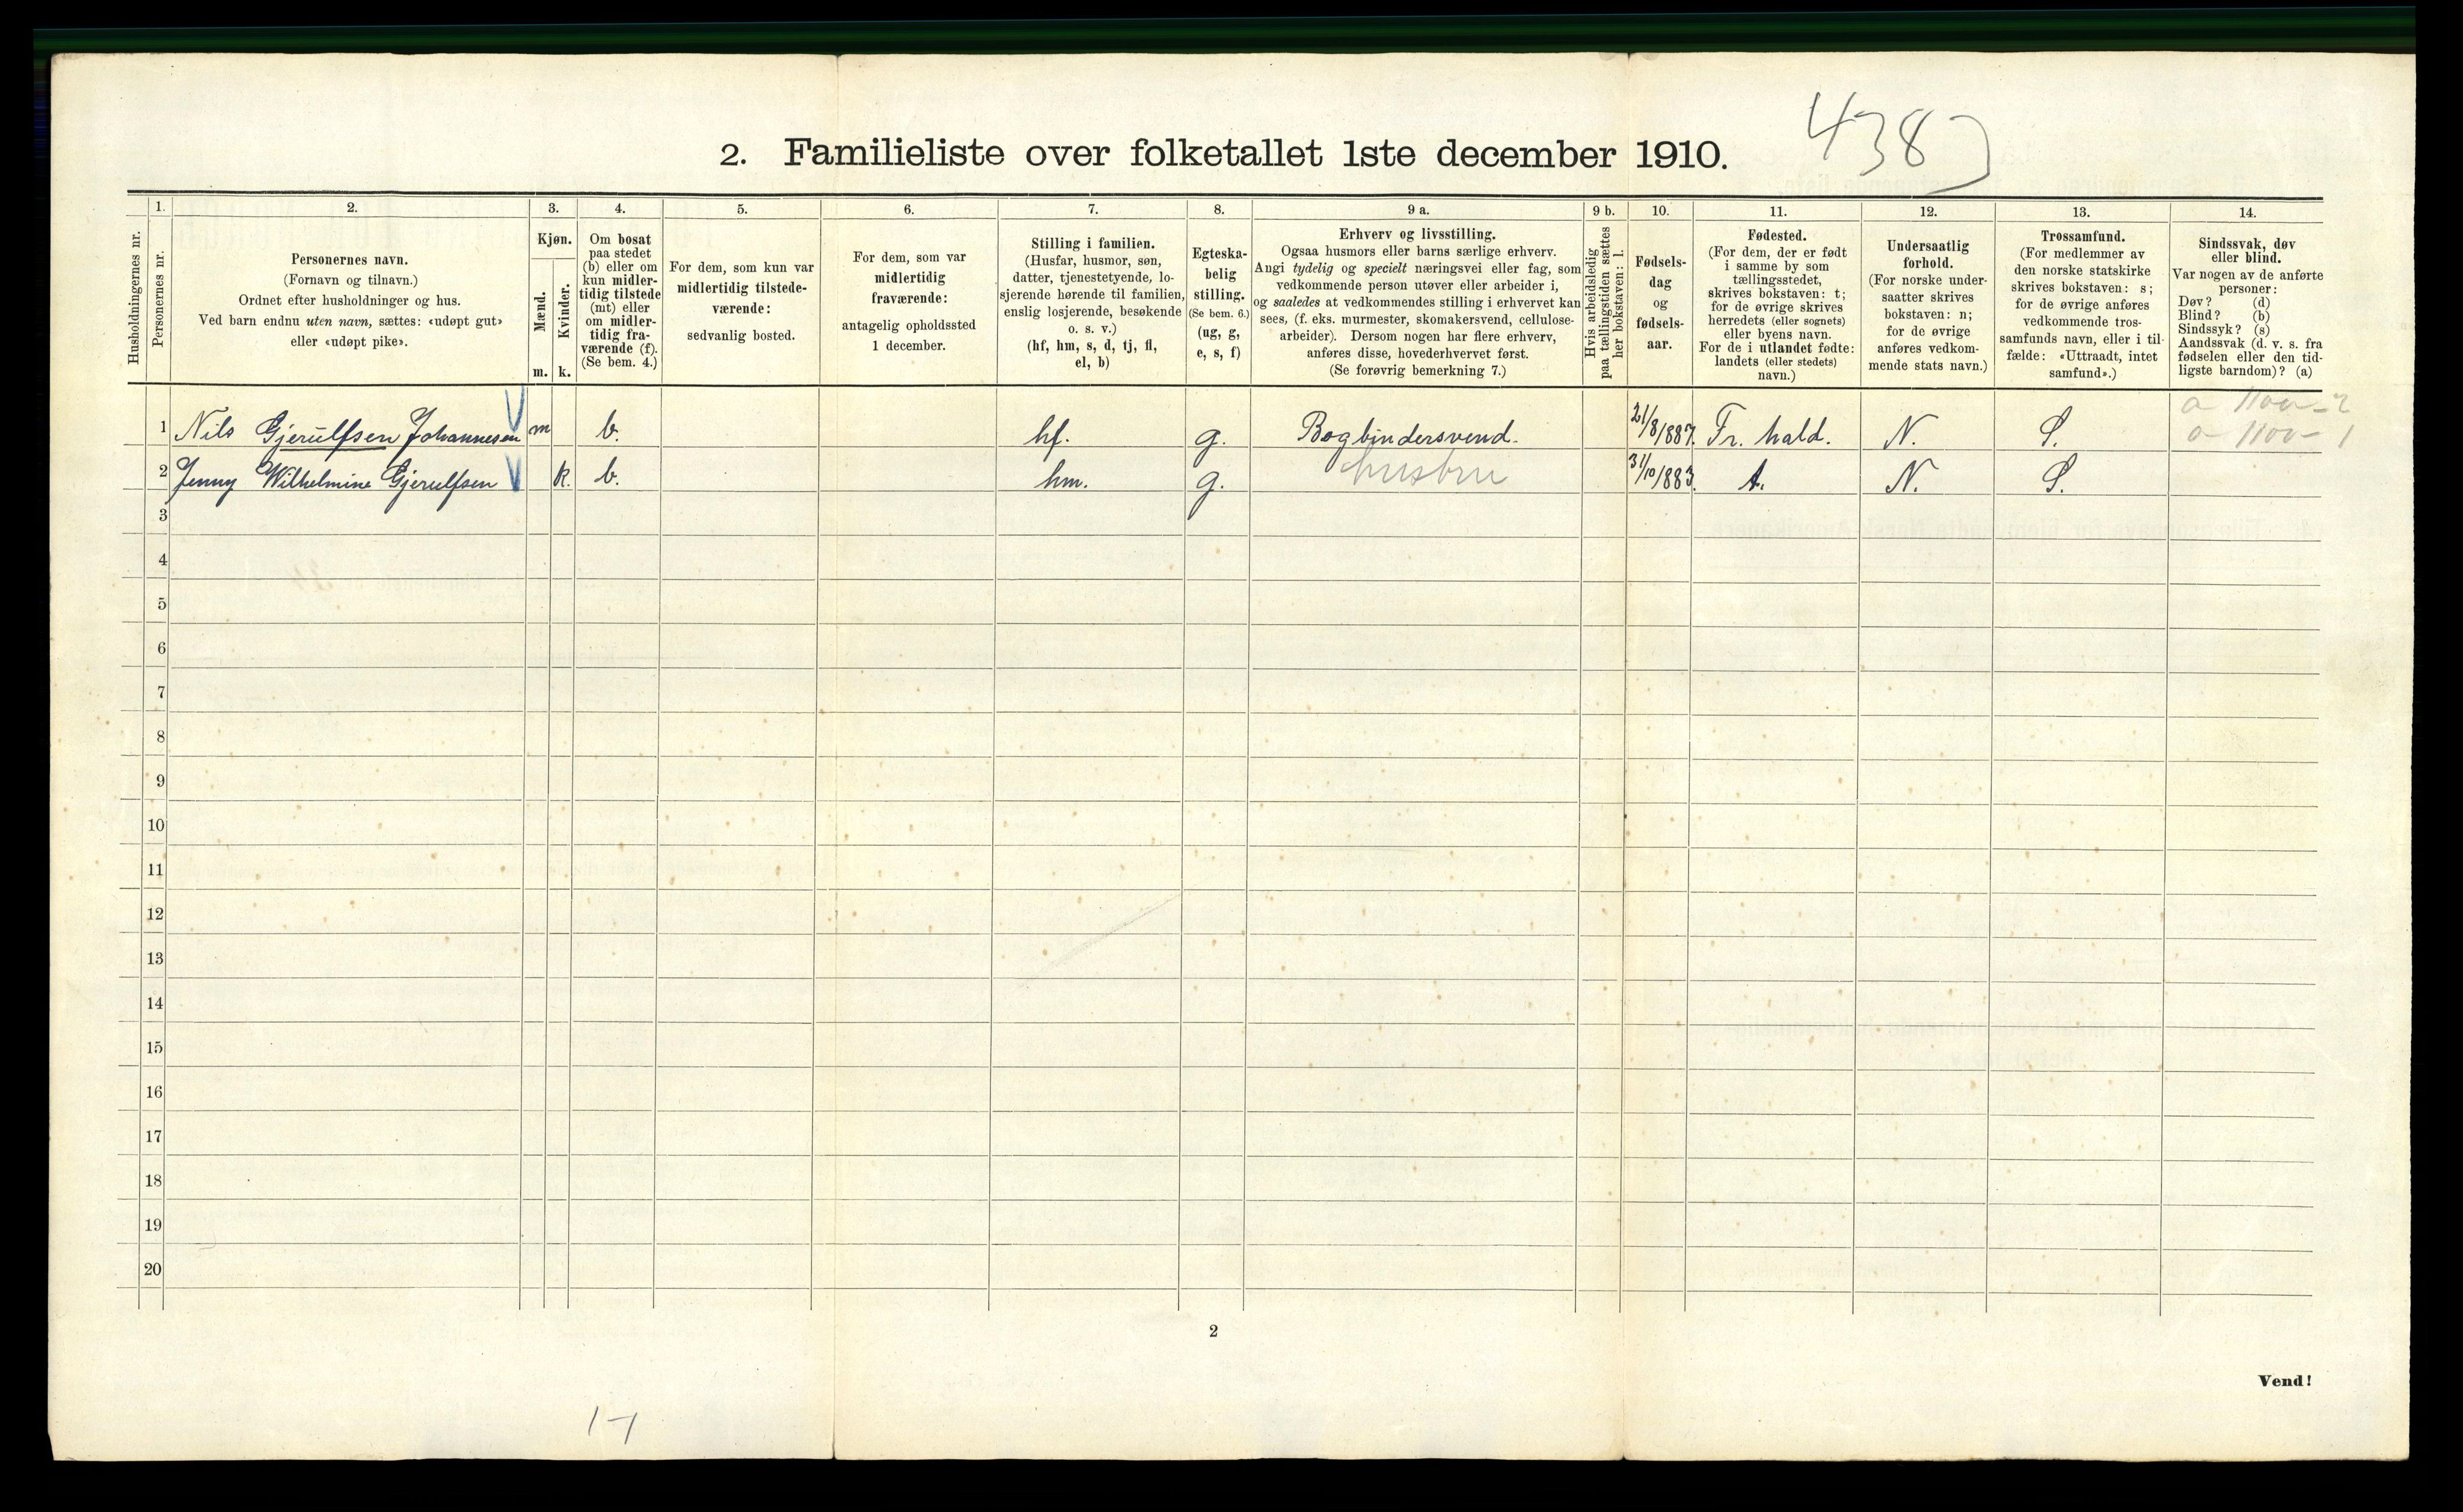 4383
2. Familieliste over folketallet 1ste december 1910.
Husholdningernes nr.
1.
Personernes nr.
2.
Personernes navn.
(Fornavn og tilnavn.)
Ordnet efter husholdninger og hus.
Ved barn endnu uten navn, sættes: «udøpt gut»
eller «udøpt pike».
3.
Kjøn.
Mænd.
Kvinder.
m. k.
4.
Om bosat
paa stedet
(b) eller om
kun midler-
tidig tilstede
(mt) eller
om midler-
tidig fra-
værende (f).
(Se bem. 4.)
5.
For dem, som kun var
midlertidig tilstede-
værende:
sedvanlig bosted.
6.
For dem, som var
midlertidig
fraværende:
antagelig opholdssted
1 december.
7.
Stilling i familien.
(Husfar, husmor, søn,
datter, tjenestetyende, lo-
sjerende hørende til familien,
enslig losjerende, besøkende
o. s. v.)
(hf, hm, s, d, tj, fl,
el, b)
8.
Egteska-
belig
stilling.
(Se bem. 6.)
(ug, g,
e, s, f)
9 a.
Erhverv og livsstilling.
Ogsaa husmors eller barns særlige erhverv.
Angi tydelig og specielt næringsvei eller fag, som
vedkommende person utøver eller arbeider i,
og saaledes at vedkommendes stilling i erhvervet kan
sees, (f. eks. murmester, skomakersvend, cellulose-
arbeider). Dersom nogen har flere erhverv,
anføres disse, hovederhvervet først.
(Se forøvrig bemerkning 7.)
9 b.
Hvis arbeidsledig
paa tællingstiden sættes
her bokstaven: l.
10.
Fødsels-
dag
og
fødsels-
aar.
11.
Fødested.
(For dem, der er født
i samme by som
tællingsstedet,
skrives bokstaven: t;
for de øvrige skrives
herredets (eller sognets)
eller byens navn.
For de i utlandet fødte:
landets (eller stedets)
navn.)
12.
Undersaatlig
forhold.
(For norske under-
saatter skrives
bokstaven: n;
for de øvrige
anføres vedkom-
mende stats navn.)
13.
Trossamfund.
(For medlemmer av
den norske statskirke
skrives bokstaven: s;
for de øvrige anføres
vedkommende tros-
samfunds navn, eller i til-
fælde: «Uttraadt, intet
samfund».)
14.
Sindssvak, døv
eller blind.
Var nogen av de anførte
personer:
Døv? (d)
Blind? (b)
Sindssyk? (s)
Aandssvak (d. v. s. fra
fødselen eller den tid-
ligste barndom)? (a)
1 Nils Gjerulfsen Johannesen m b. hf. g. Bogbindersvend. 21/8/887. Fr. hald. N. S.
2 Jenny Wilhelmine Gjerulfsen k. b. hm. g. husbru 31/10/883. t. N. S.
3
4
5
6
7
8
9
10
11
12
13
14
15
16
17
18
19
20
2
Vend!
17